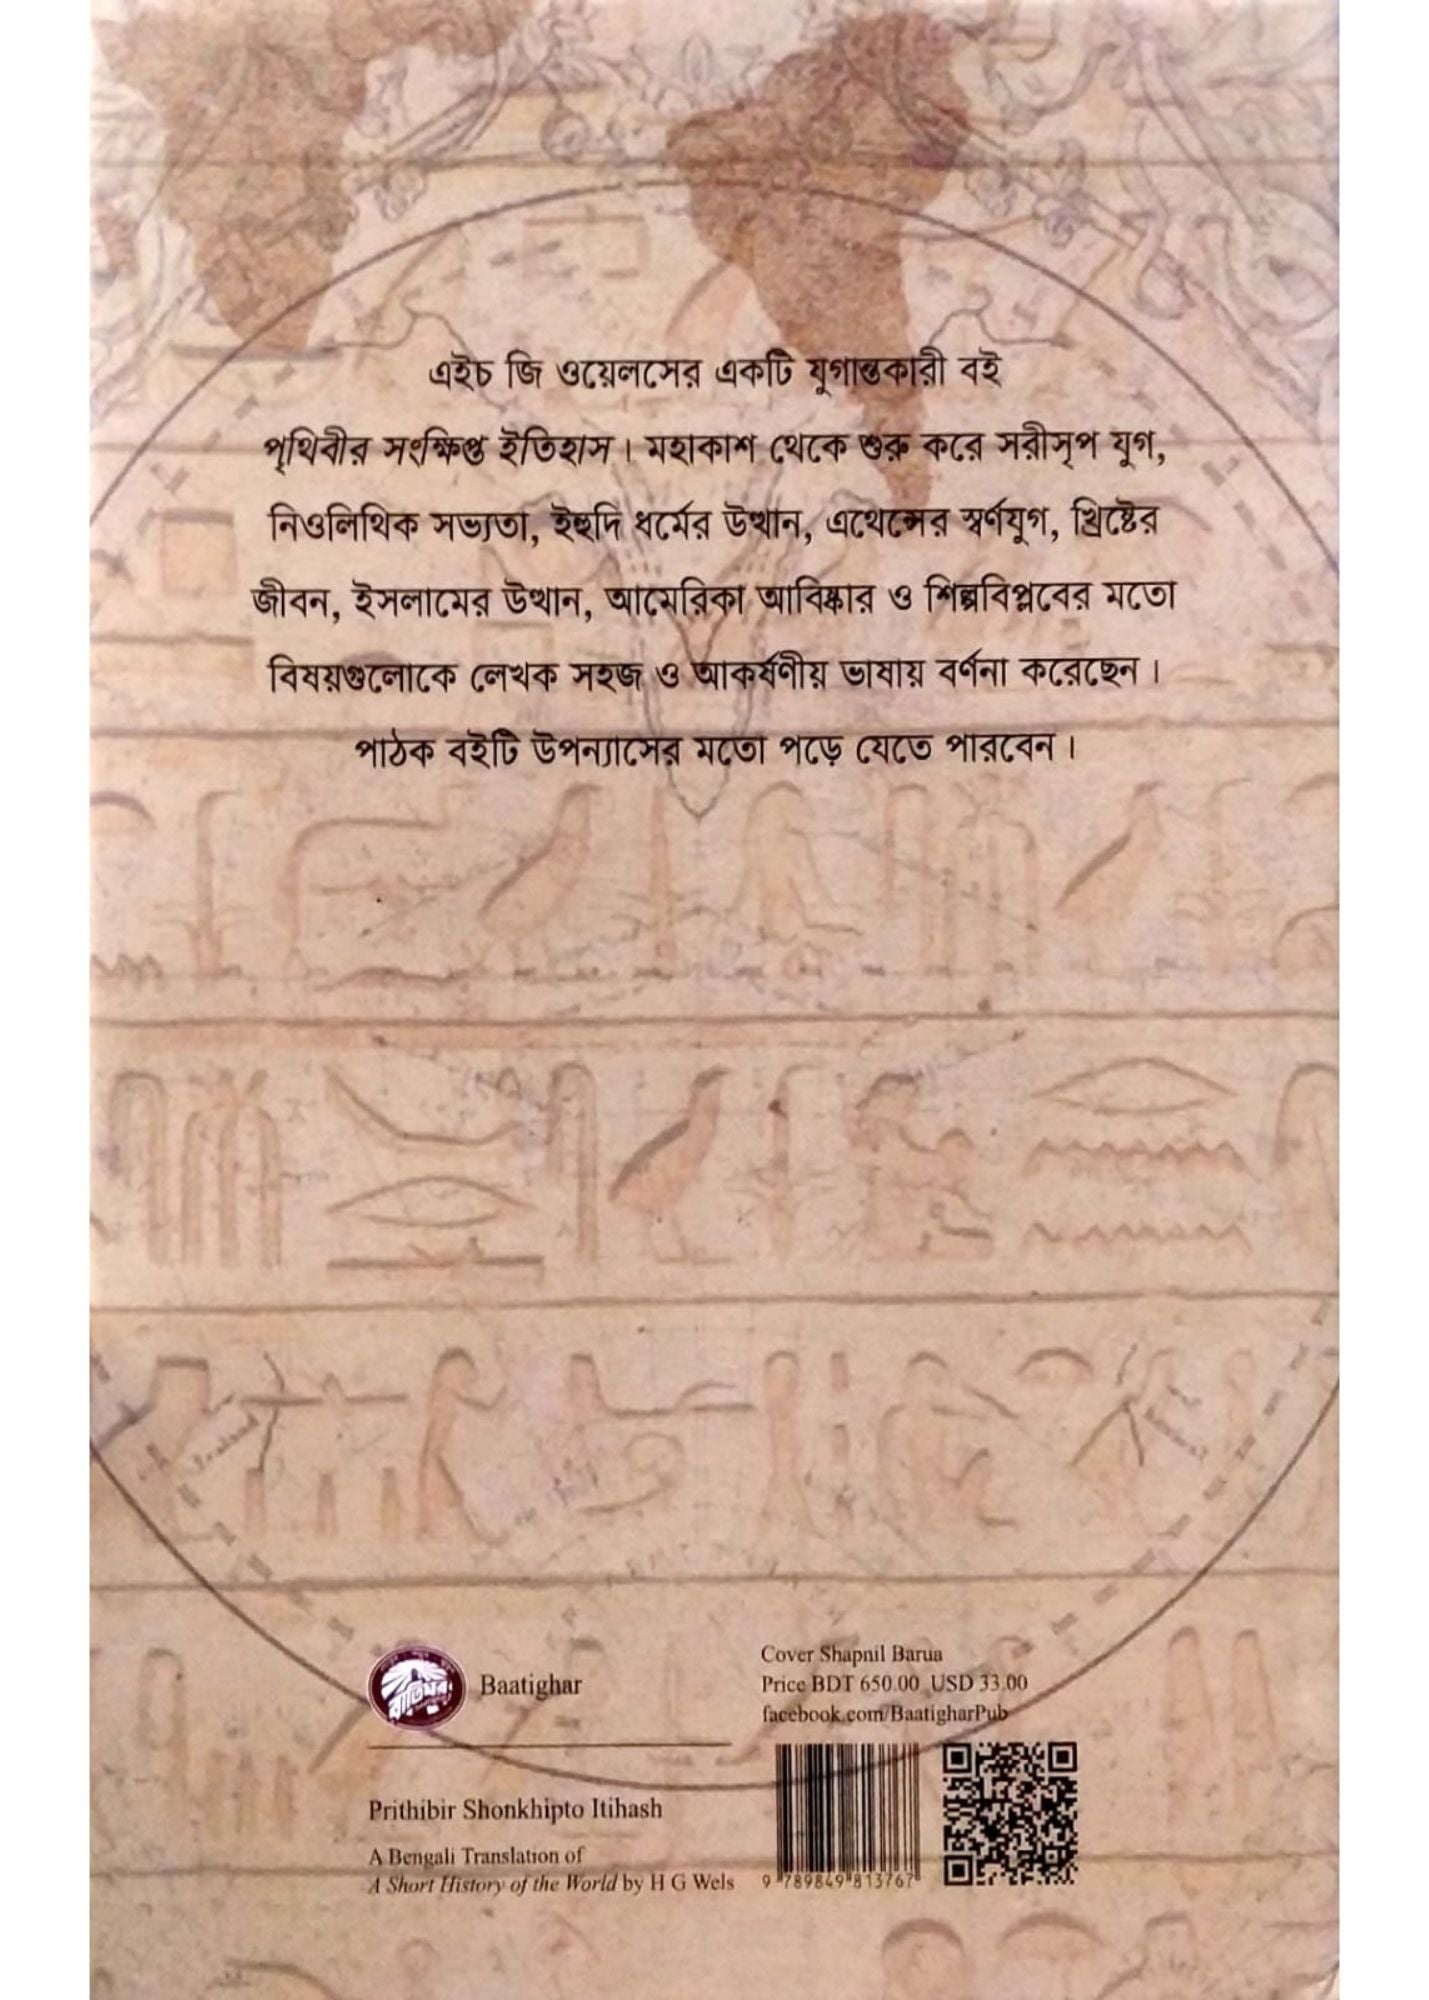 এইচ জি ওয়েলসের একটি যুগান্তকারী বই
পৃথিবীর সংক্ষিপ্ত ইতিহাস। মহাকাশ থেকে শুরু করে সরীসৃপ যুগ,
নিওলিথিক সভ্যতা, ইহুদি ধর্মের উত্থান, এথেন্সের স্বর্ণযুগ, খ্রিষ্টের
জীবন, ইসলামের উত্থান, আমেরিকা আবিষ্কার ও শিল্পবিপ্লবের মতো
বিষয়গুলোকে লেখক সহজ ও আকর্ষণীয় ভাষায় বর্ণনা করেছেন।
পাঠক বইটি উপন্যাসের মতো পড়ে যেতে পারবেন।
বাতিঘর
Baatighar
Cover Shapnil Barua
Price BDT 650.00 USD 33.00
facebook.com/BaatigharPub
Prithibir Shonkhipto Itihash
A Bengali Translation of
A Short History of the World by H G Wels
9 789849 813767